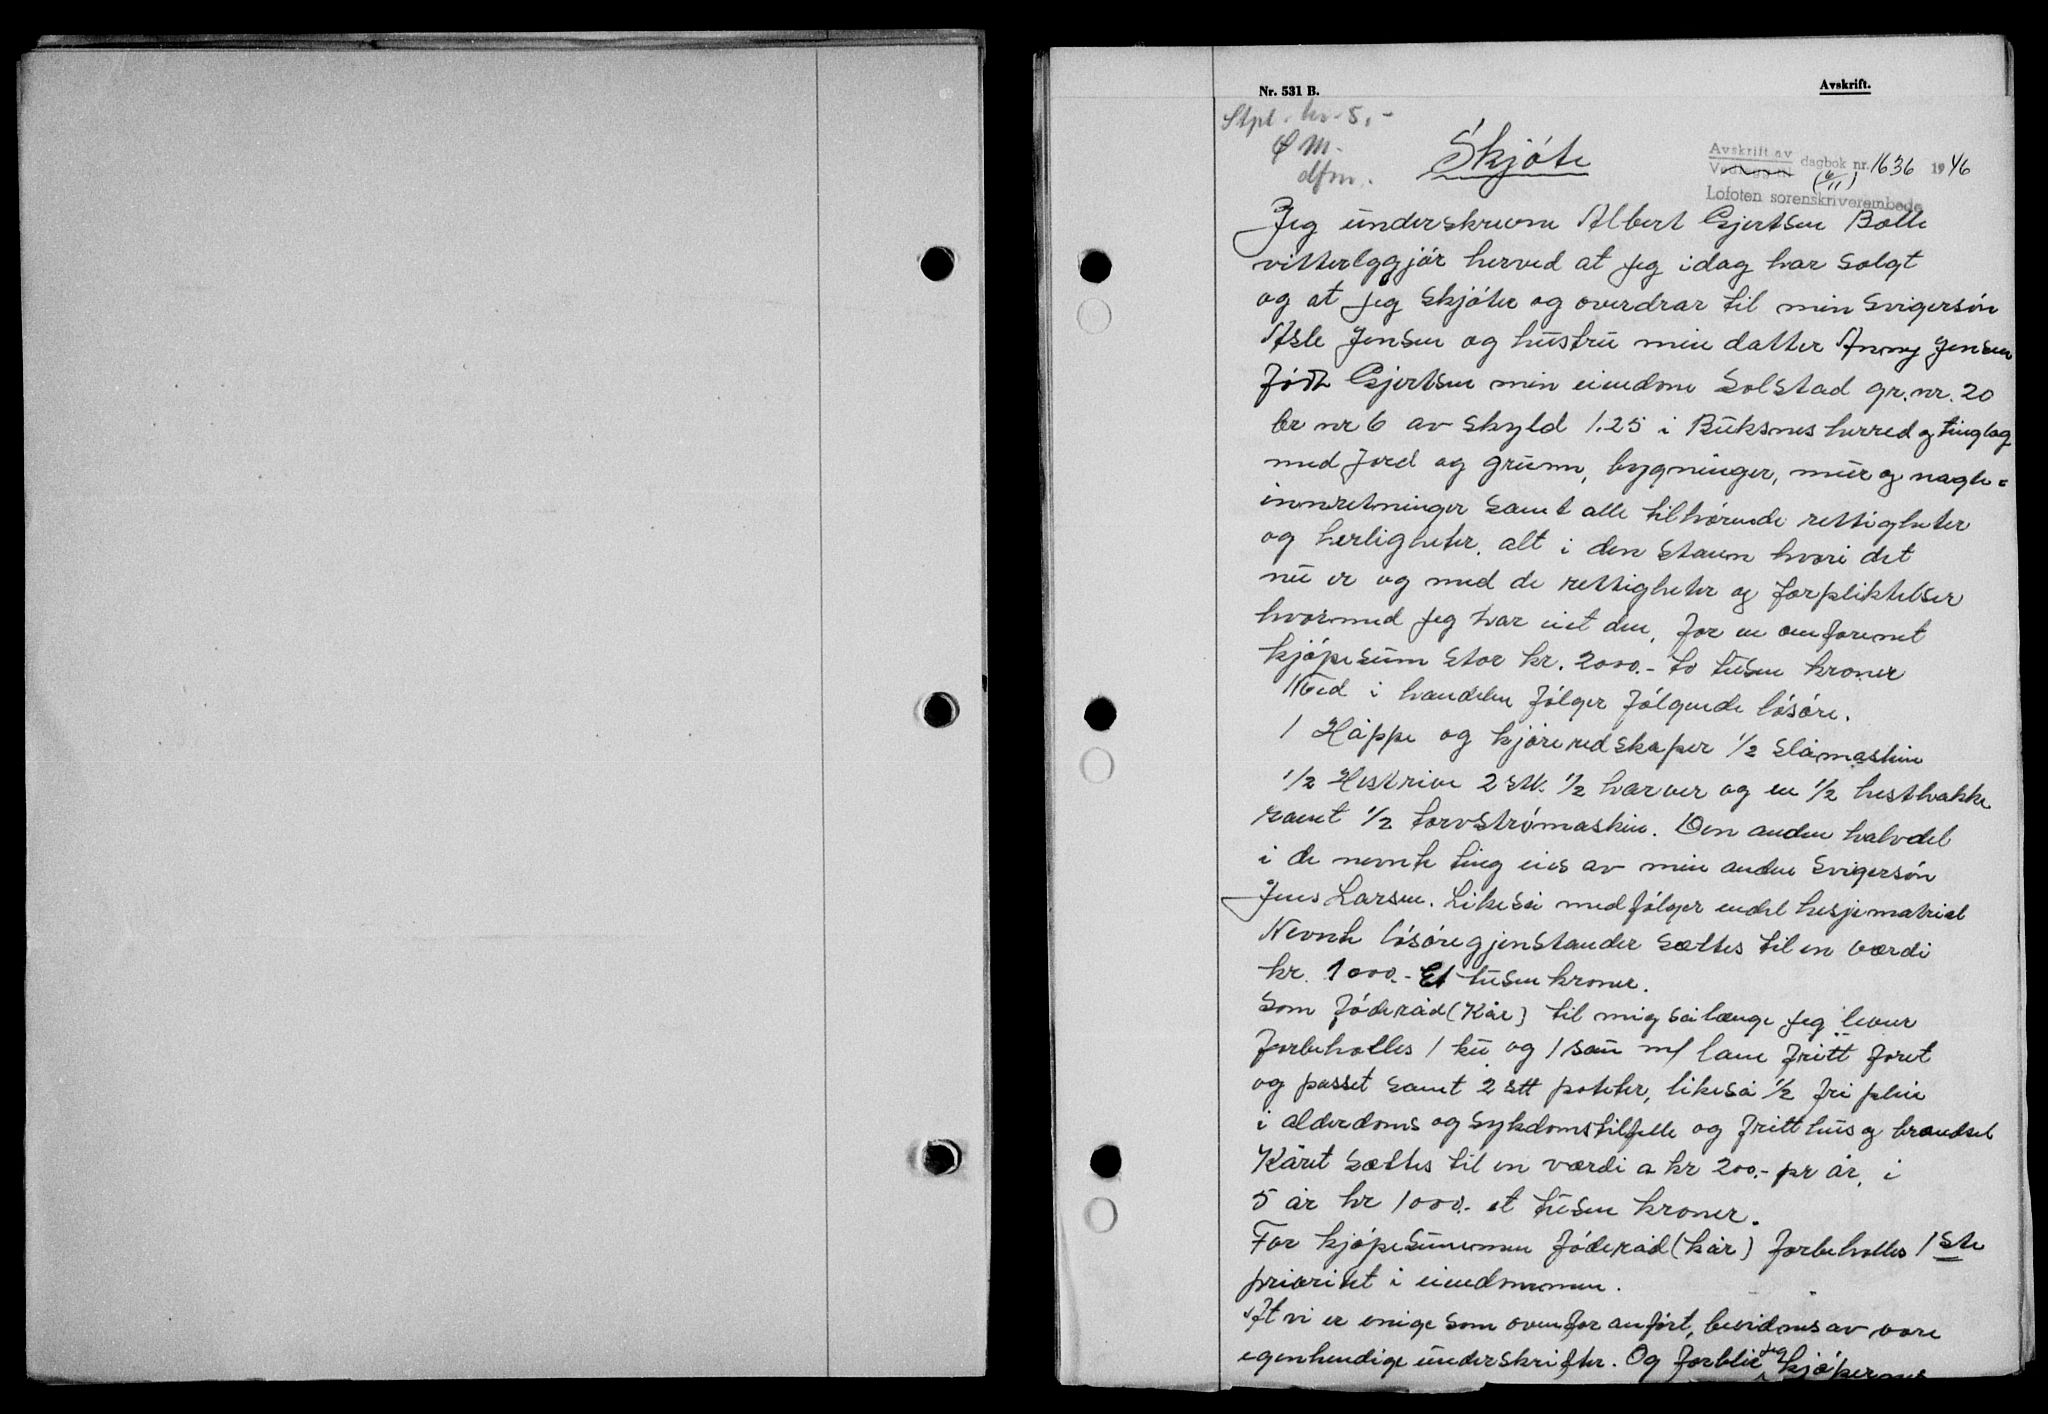 Nr. 531 B.
Avskrift.
Stpl. kr. 5,-
Ø M.
dfm.
Skjöte
Avskrift av
Vedlegg til dagbok nr. 1636 1946
(6/11)
Lofoten sorenskriverembede
Jeg underskrevne Albert Gjertsen Bolle
vitterlggjör herved at jeg idag har solgt
og at jeg skjöter og overdrar til min svigersön
Asle Jensen og hustru min datter Anny Jensen
född Gjertsen min eiendom Solstad gr.nr. 20
br nr 6 av skyld 1.25 i Buksnes herred og tinglag
med jord og grunn, bygninger, mur og nagle-
innretninger samt alle tilhörende rettigheter
og herligheter. alt i den stann hvori det
nu er og med de rettigheter og forpliktelser
hvormed jeg har eiet den, for en omforenet
kjöpesum stor kr. 2000.- to tusen kroner
Med i handelen fölger fölgende lösöre.
1 Hoppe og kjöreredskaper 1/2 slåmaskin
1/2 Hestrive 2 stk. 1/2 harver og en 1/2 hesthakke
samt 1/2 torvströmaskin. Den anden halvdel
i de nevnte ting eies av min anden svigersön
Jens Larsen. Likeså medfölger endel hesjematriel
Nevnte lösöregjenstander sættes til en værdi
kr. 1000.- Et tusen kroner.
Som föderåd (Kår) til mig sålænge jeg lever
forbeholles 1 ku og 1 sau m/ lam fritt foret
og passet samt 2 stt poteter, likeså 1/2 fri pleie
i alderdoms og sykdomstilfelle og fritt hus og brændsel
Kåret sættes til en værdi a kr 200.- pr år, i
5 år kr 1000.- et tusen kroner.
For kjöpesummen föderåd (kår) forbeholles 1ste
prioritet i eiendommen.
At vi er enige som ovenfor anfört, bevidnes av vore
egenhendige underskrifter. Og forblir jeg kjöpernes